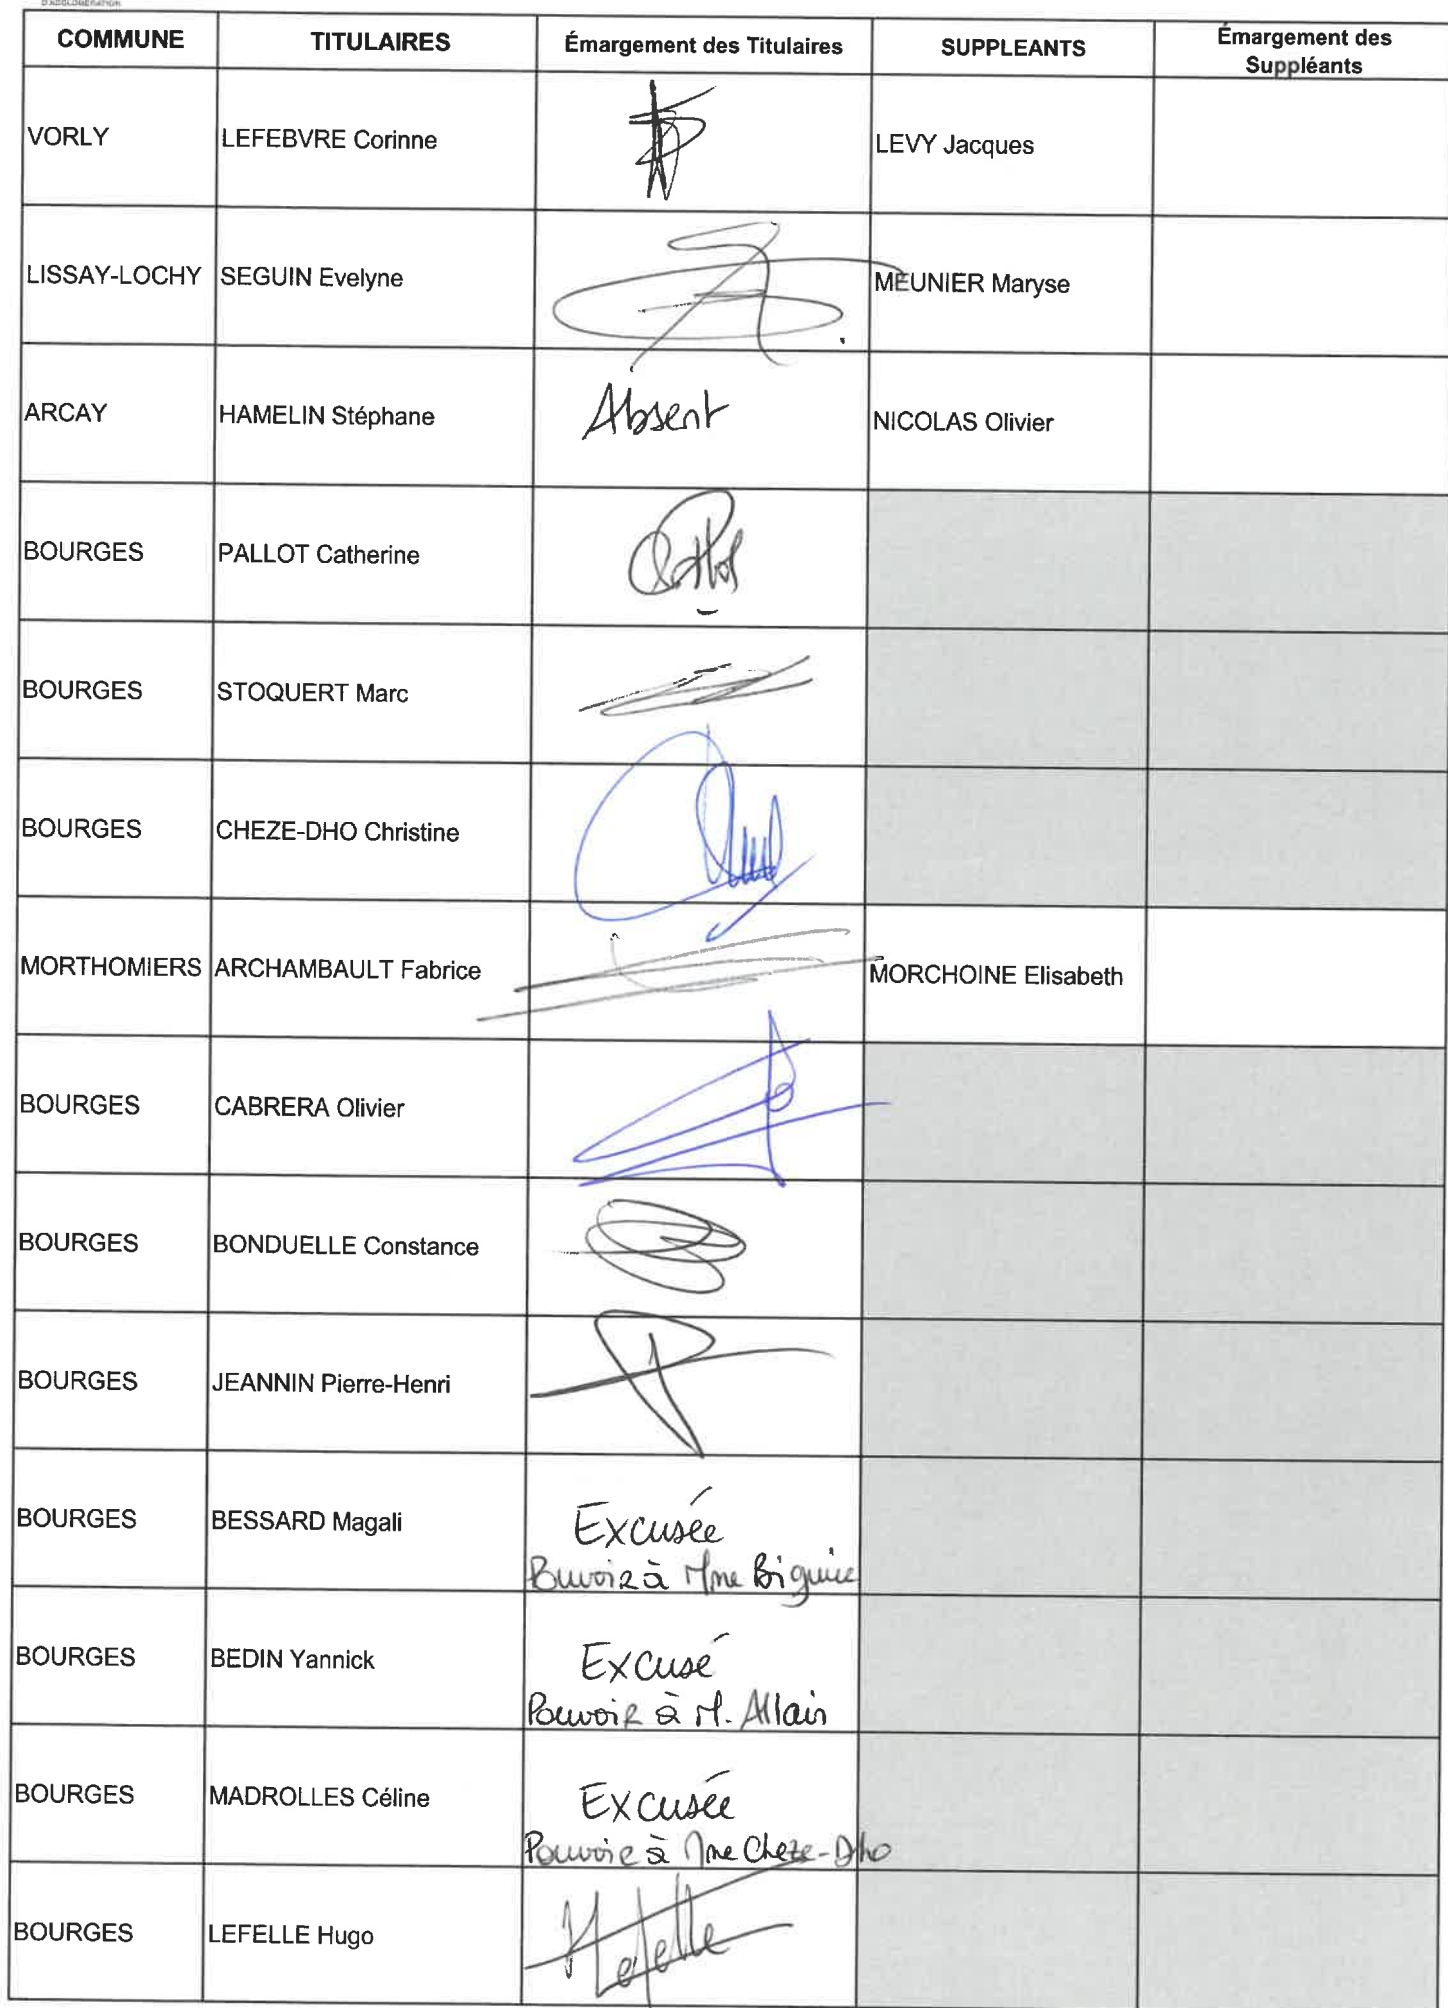 D'AGGLOMÉRATION
COMMUNE TITULAIRES Émargement des Titulaires SUPPLEANTS Émargement des
Suppléants
VORLY LEFEBVRE Corinne LEVY Jacques
LISSAY-LOCHY SEGUIN Evelyne MEUNIER Maryse
ARCAY HAMELIN Stéphane Absent NICOLAS Olivier
BOURGES PALLOT Catherine
BOURGES STOQUERT Marc
BOURGES CHEZE-DHO Christine
MORTHOMIERS ARCHAMBAULT Fabrice MORCHOINE Elisabeth
BOURGES CABRERA Olivier
BOURGES BONDUELLE Constance
BOURGES JEANNIN Pierre-Henri
BOURGES BESSARD Magali Excusée
Pouvoir à Mme Biguier
BOURGES BEDIN Yannick Excusé
Pouvoir à M. Allain
BOURGES MADROLLES Céline Excusée
Pouvoir à Mme Cheze-Dho
BOURGES LEFELLE Hugo Lefelle